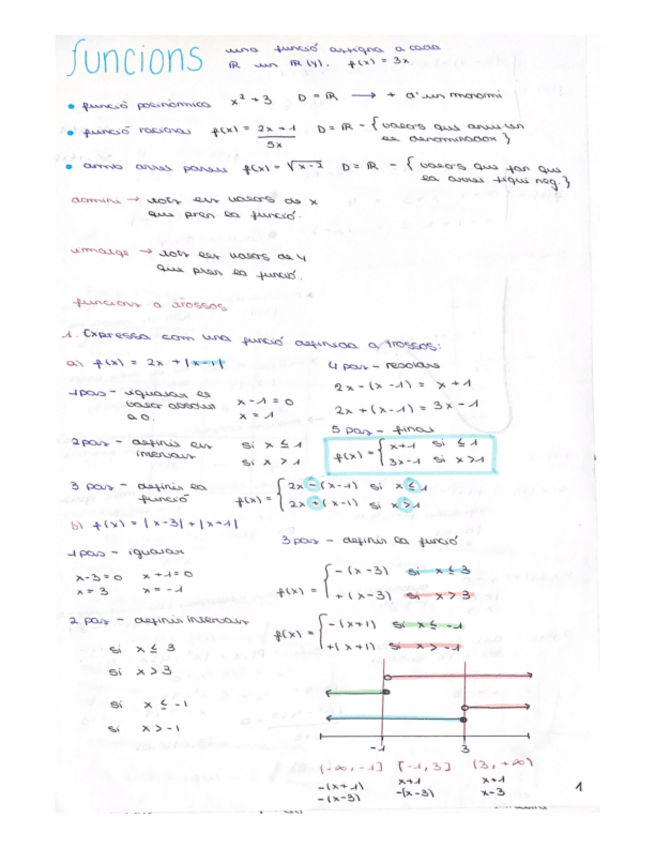 funcions
una funció assigna a cada
ℝ un ℝ (y). f(x) = 3x
• funció polinòmica x² + 3 D = ℝ ⟶ + d'un monomi
• funció racional f(x) = (2x + 1)/5x D = ℝ - { valors que anul·len
el denominador }
• amb arrel parell f(x) = √(x-2) D = ℝ - { valors que fan que
la arrel sigui neg. }
domini → tots els valors de x
que pren la funció.
imatge → tots els valors de y
que pren la funció.
funcions a trossos
1. Expressa com una funció definida a trossos:
a) f(x) = 2x + |x-1|
1 pas - igualar el
valor absolut
a 0.
x - 1 = 0
x = 1
2 pas - definir els
intervals
si x ≤ 1
si x > 1
3 pas - definir la
funció
f(x) = { 2x - (x-1) si x ≤ 1
2x + (x-1) si x > 1
4 pas - resoldre
2x - (x - 1) = x + 1
2x + (x - 1) = 3x - 1
5 pas - final
f(x) = { x+1 si ≤ 1
3x-1 si x > 1
b) f(x) = |x-3| + |x+1|
1 pas - igualar
x-3=0 x+1=0
x = 3 x = -1
2 pas - definir intervals
si x ≤ 3
si x > 3
si x ≤ -1
si x > -1
3 pas - definir la funció
f(x) = { - (x-3) si x ≤ 3
+ (x-3) si x > 3
f(x) = { - (x+1) si x ≤ -1
+ (x+1) si x > -1
-1 3
(-∞, -1] [-1, 3] (3, +∞)
-(x+1) x+1 x+1
-(x-3) -(x-3) x-3
1